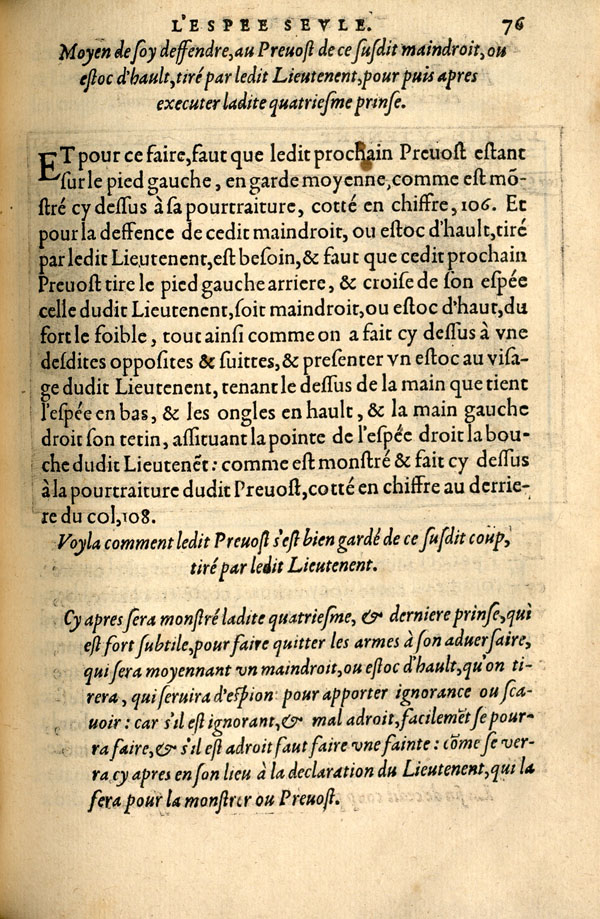 L'ESPEE SEVLE. 76
Moyen de soy deffendre, au Preuost de ce susdit maindroit, ou
estoc d'hault, tiré par ledit Lieutenent, pour puis apres
executer ladite quatriesme prinse.
ET pour ce faire, faut que ledit prochain Preuost estant
sur le pied gauche, en garde moyenne, comme est mō-
stré cy dessus à sa pourtraiture, cotté en chiffre, 106. Et
pour la deffence de cedit maindroit, ou estoc d'hault, tiré
par ledit Lieutenent, est besoin, & faut que cedit prochain
Preuost tire le pied gauche arriere, & croise de son espée
celle dudit Lieutenent, soit maindroit, ou estoc d'haut, du
fort le foible, tout ainsi comme on a fait cy dessus à vne
desdites opposites & suittes, & presenter vn estoc au visa-
ge dudit Lieutenent, tenant le dessus de la main que tient
l'espée en bas, & les ongles en hault, & la main gauche
droit son tetin, assituant la pointe de l'espée droit la bou-
che dudit Lieutenēt: comme est monstré & fait cy dessus
à la pourtraiture dudit Preuost, cotté en chiffre au derrie-
re du col, 108.
Voyla comment ledit Preuost s'est bien gardé de ce susdit coup,
tiré par ledit Lieutenent.
Cy apres sera monstré ladite quatriesme, & derniere prinse, qui
est fort subtile, pour faire quitter les armes à son aduersaire,
qui sera moyennant vn maindroit, ou estoc d'hault, qu'on ti-
rera, qui seruira d'espion pour apporter ignorance ou sca-
uoir: car s'il est ignorant, & mal adroit, facilemēt se pour-
ra faire, & s'il est adroit faut faire vne fainte: cōme se ver-
ra cy apres en son lieu à la declaration du Lieutenent, qui la
fera pour la monstrer ou Preuost.